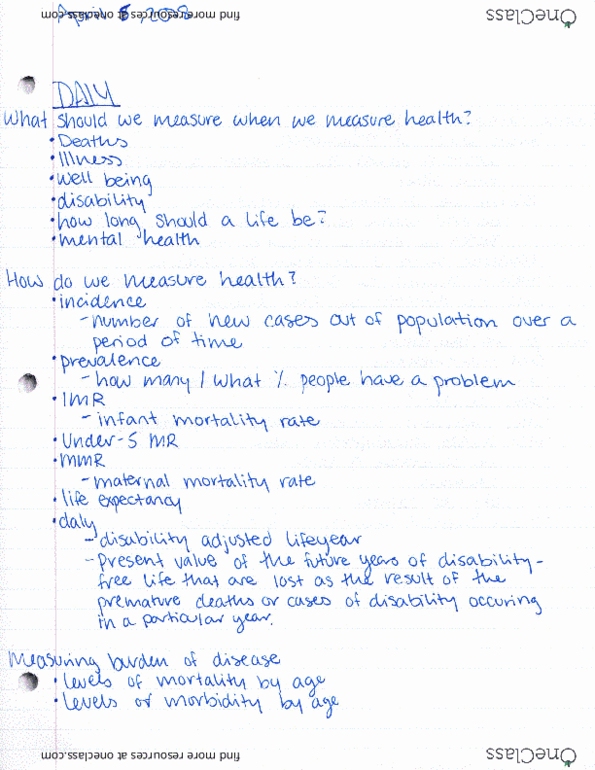 find more resources at oneclass.com
OneClass
DALY
What should we measure when we measure health?
• Deaths
• Illness
• well being
• disability
• how long should a life be?
• mental health
How do we measure health?
• incidence
- number of new cases out of population over a
period of time
• prevalence
- how many / what % people have a problem
• IMR
- infant mortality rate
• Under-5 MR
• MMR
- maternal mortality rate
• life expectancy
• daly
- disability adjusted lifeyear
- present value of the future years of disability-
free life that are lost as the result of the
premature deaths or cases of disability occuring
in a particular year.
Measuring burden of disease
• levels of mortality by age
• levels of morbidity by age
find more resources at oneclass.com
OneClass